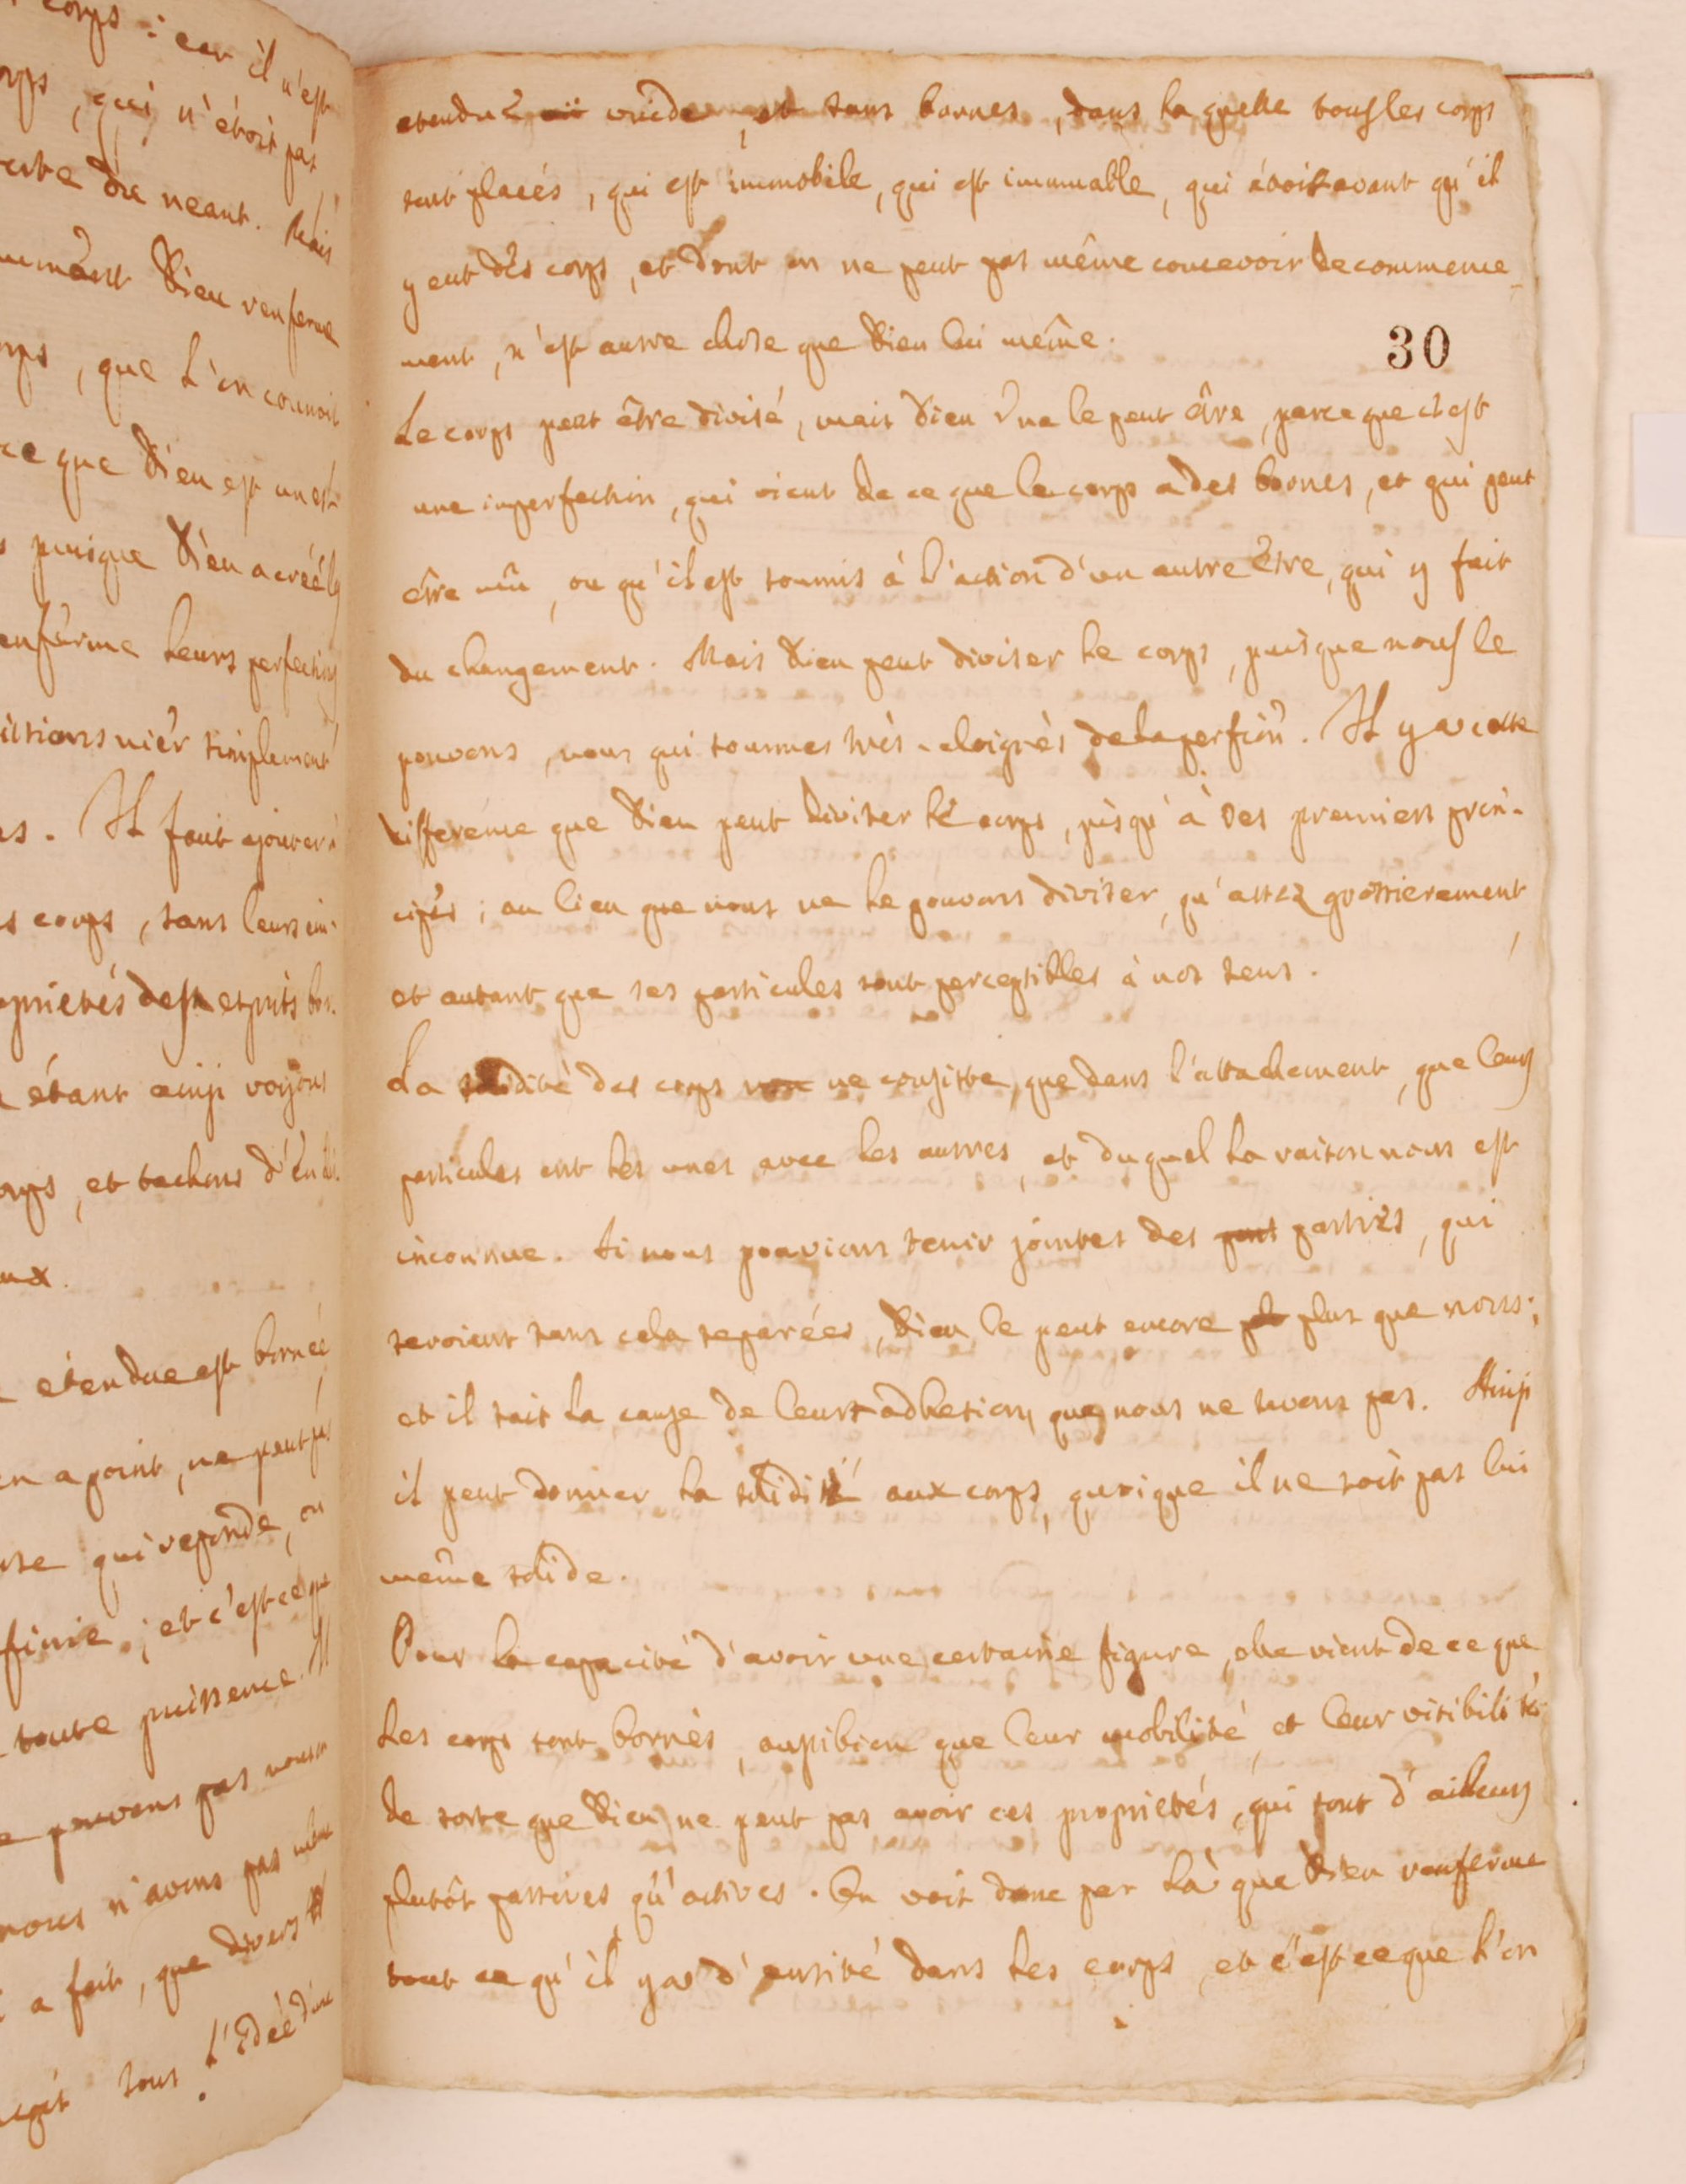 corps : car il n'est
corps, qui n'étoit pas
du neant. Mais
Dieu renferme
corps, que l'on connoit
ce que Dieu est un
puisque Dieu a créé
enferme leurs perfections
nier simplement
Il faut ajouter
corps, sans leurs im-
proprietés des esprits
étant ainsi voyons
corps, et tachons d'en
eux.
étendue est bornée
en a point, ne peut pas
qui reponde, ou
finie ; et c'est ce que
toute puissence. Il
pouvons pas
nous n'avons pas même
a fait, que divers
sous l'idée d'une
etendue vuide, et sans bornes, dans la quelle tous les corps
sont placés, qui est immobile, qui est immuable, qui étoit avant qu'il
y eut des corps, et dont on ne peut pas même concevoir de commence-
ment, n'est autre chose que Dieu lui même.
30
Le corps peut être divisé, mais Dieu ne le peut être, parce que c'est
une imperfection, qui vient de ce que le corps a des bornes, et qui peut
être mû, ou qu'il est soumis à l'action d'un autre être, qui y fait
du changement. Mais Dieu peut diviser le corps, puisque nous le
pouvons, nous qui sommes très-eloignés de la perfion. Il y a cette
difference que Dieu peut diviser le corps, jusqu'à ses premiers prin-
cipes ; au lieu que nous ne le pouvons diviser, qu'assez grossierement,
et autant que ses particules sont perceptibles à nos sens.
La solidité des corps ne consiste, que dans l'attachement, que leurs
particules ont les unes avec les autres, et duquel la raison nous est
inconnue. Si nous pouvions tenir jointes des part parties, qui
seroient sans cela separées, Dieu le peut encore pl plus que nous ;
et il sait la cause de leurs adhesions, que nous ne savons pas. Ainsi
il peut donner la solidité aux corps, quoique il ne soit pas lui
même solide.
Pour la capacité d'avoir une certaine figure, elle vient de ce que
les corps sont bornés, aussi bien que leur mobilité, et leur visibilité ;
de sorte que Dieu ne peut pas avoir ces proprietés, qui sont d'ailleurs
plutôt passives qu'actives. On voit donc par là que Dieu renferme
tout ce qu'il y a d'entité dans les corps, et c'est ce que l'on